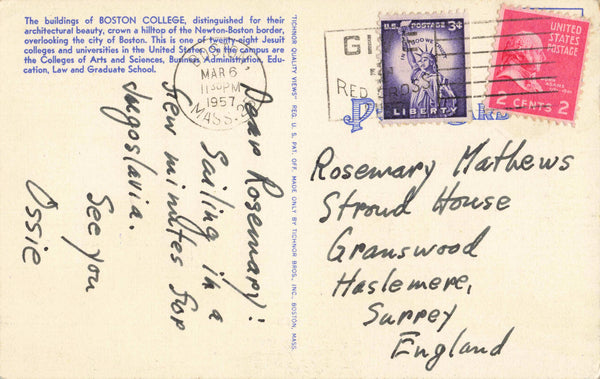 The buildings of BOSTON COLLEGE, distinguished for their
architectural beauty, crown a hilltop of the Newton-Boston border,
overlooking the city of Boston. This is one of twenty-eight Jesuit
colleges and universities in the United States. On this campus are
the Colleges of Arts and Sciences, Business Administration, Edu-
cation, Law and Graduate School.
BOSTON,
MAR 6
11 30 PM
1957
MASS.
Dear Rosemary:
Sailing in a
few minutes for
Jugoslavia.
See you
Ossie
"TICHNOR QUALITY VIEWS," REG. U. S. PAT. OFF. MADE ONLY BY TICHNOR BROS., INC., BOSTON, MASS.
RED CROSS
U.S. POSTAGE 3¢
IN GOD WE TRUST
LIBERTY
UNITED
STATES
POSTAGE
2 CENTS 2
Rosemary Mathews
Stroud House
Granswood
Haslemere,
Surrey
England